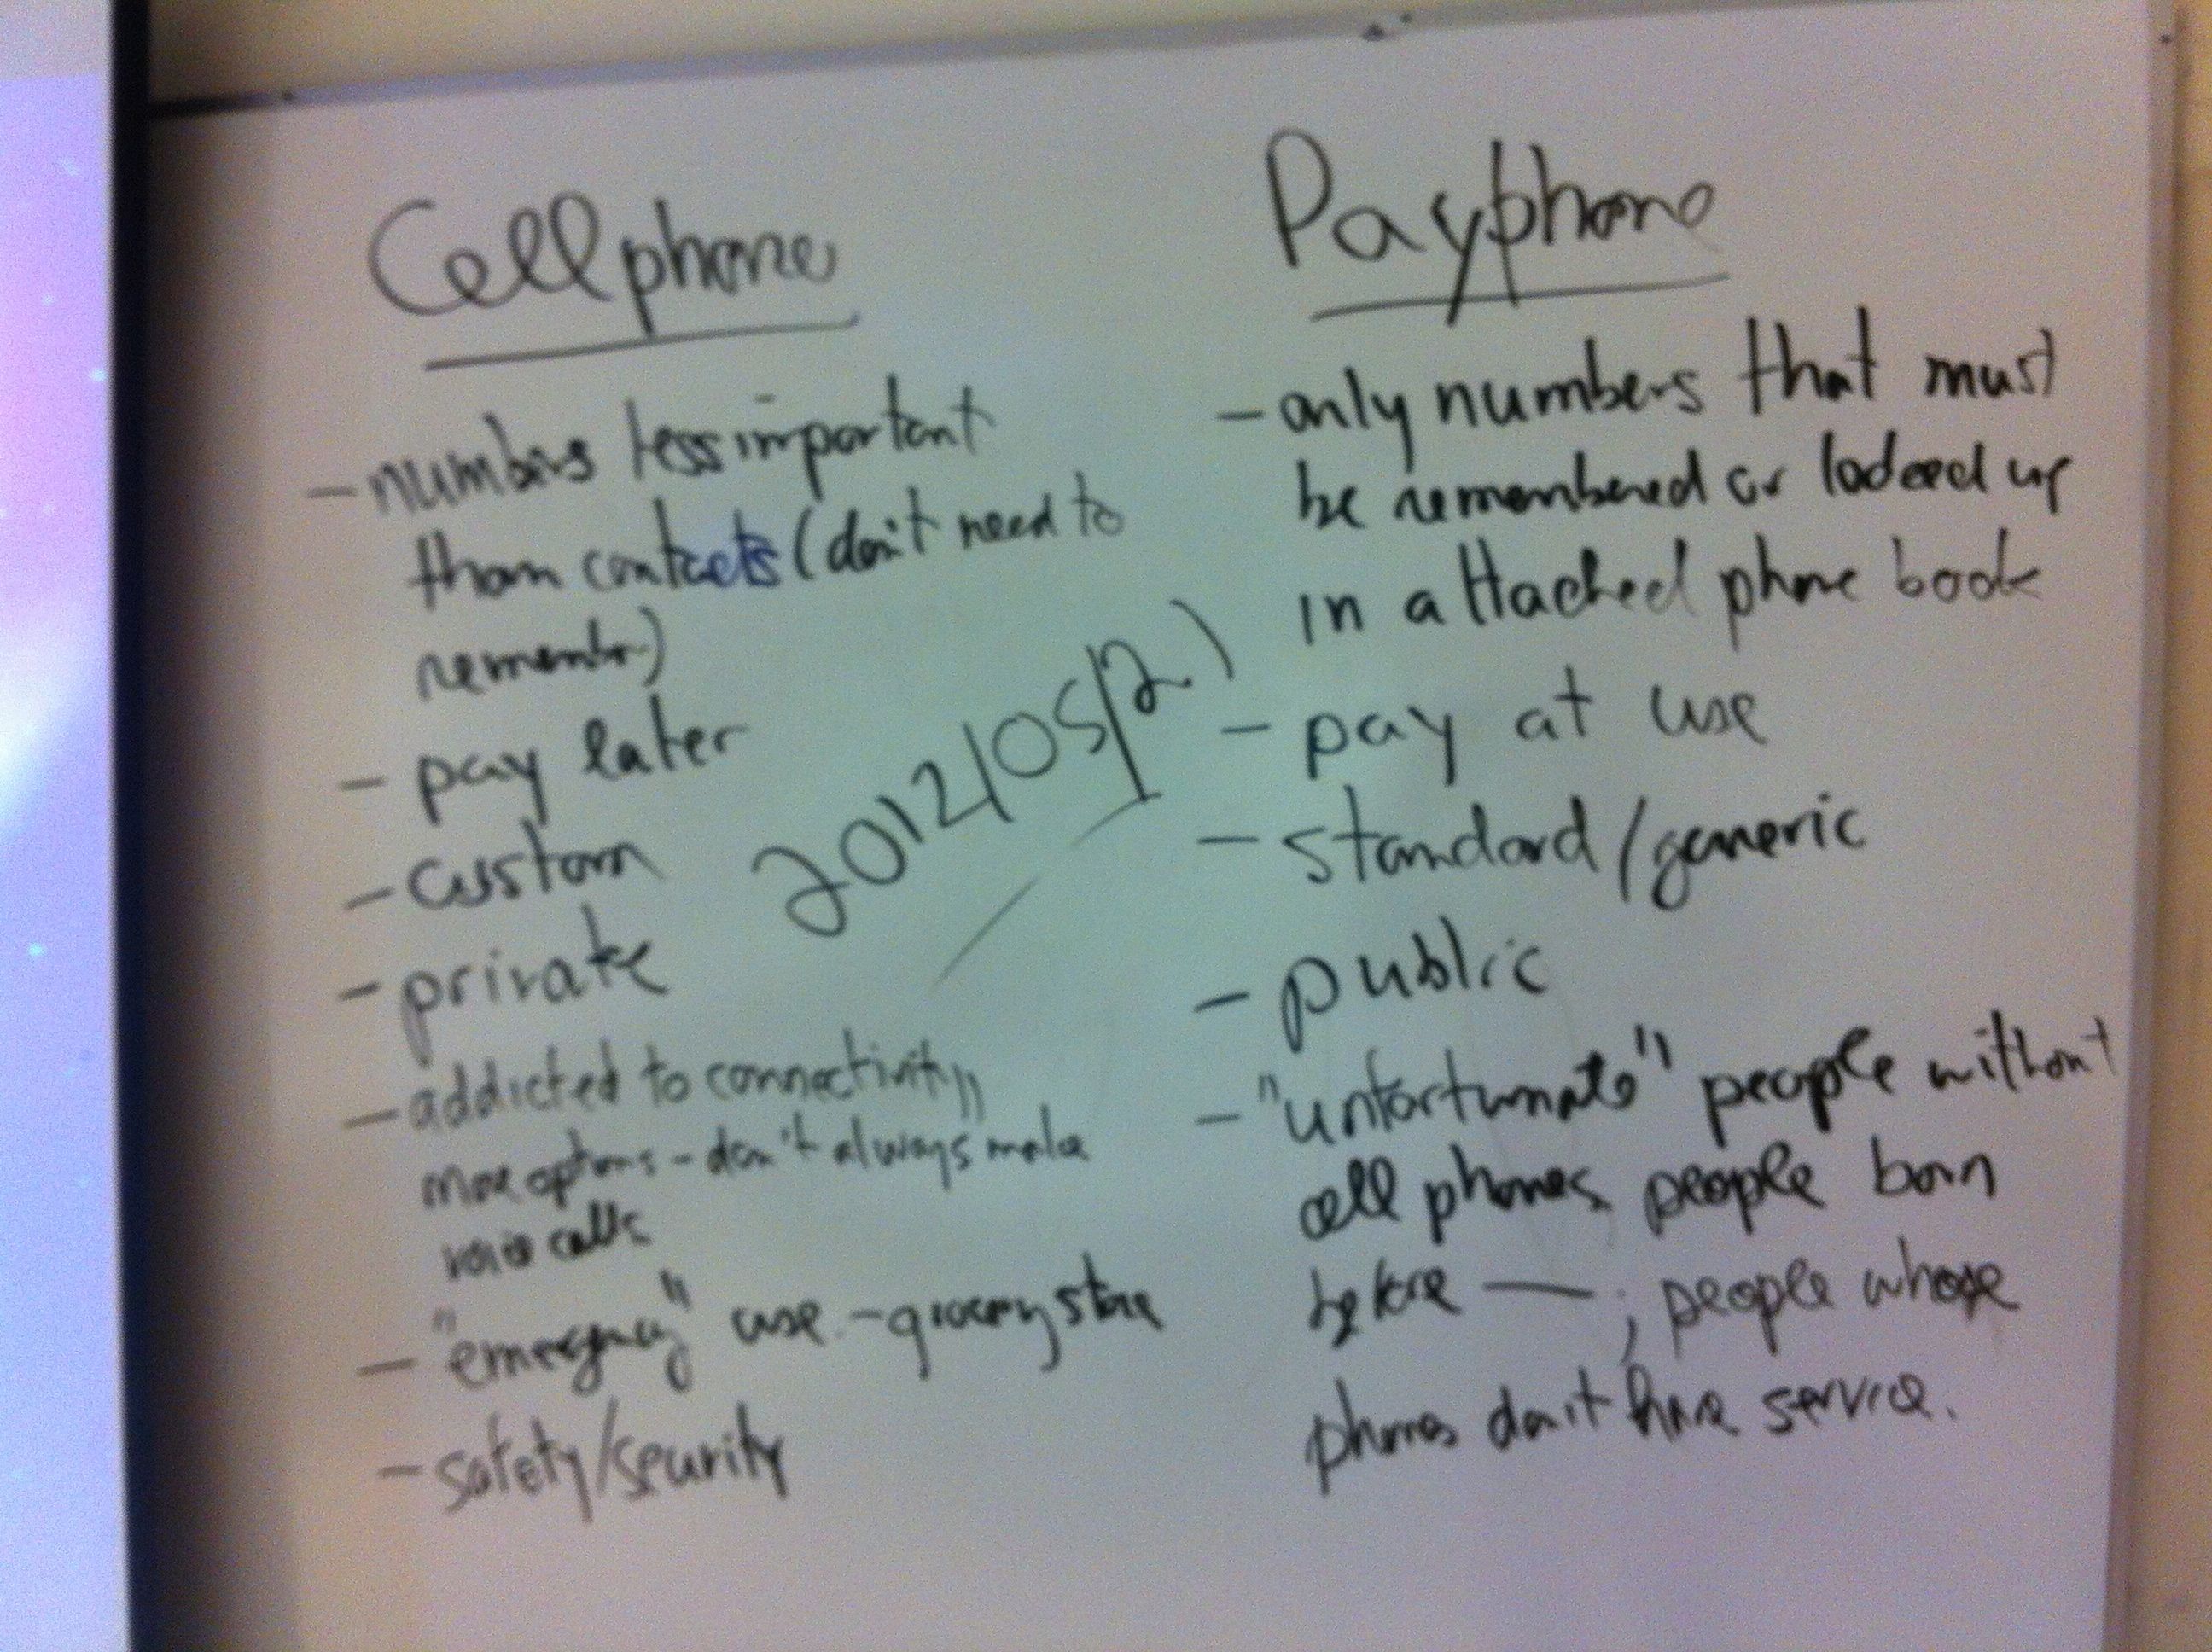 Cellphone
- numbers less important
than contacts (don't need to
remember)
- pay later
- custom
- private
- addicted to connectivity
more options - don't always make
voice calls
- "emergency" use - grocery store
- safety/security
2012/05/2
Payphone
- only numbers that must
be remembered or looked up
in attached phone book
- pay at use
- standard/generic
- public
- "unfortunate" people without
cell phones, people born
before —; people whose
phones don't have service.